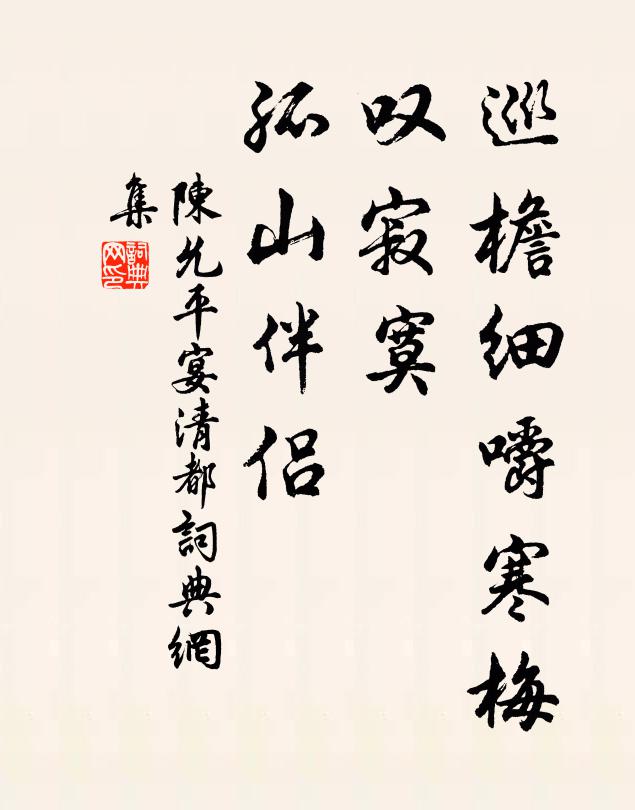 巡檐细嚼寒梅
叹寂寞
孤山伴侣
陳允平宴清都詞典網
集
詞典
网印